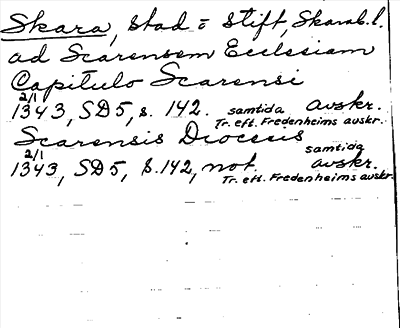 Skara, stad = stift, Skarab. l.
ad Scarensem Ecclesiam
Capitulo Scarensi
2/1
1343, SD5, s. 142. samtida avskr.
Tr. eft. Fredenheims avskr.
Scarensis Diocesis
2/1 samtida
1343, SD5, S. 142, not. avskr.
Tr. eft. Fredenheims avskr.